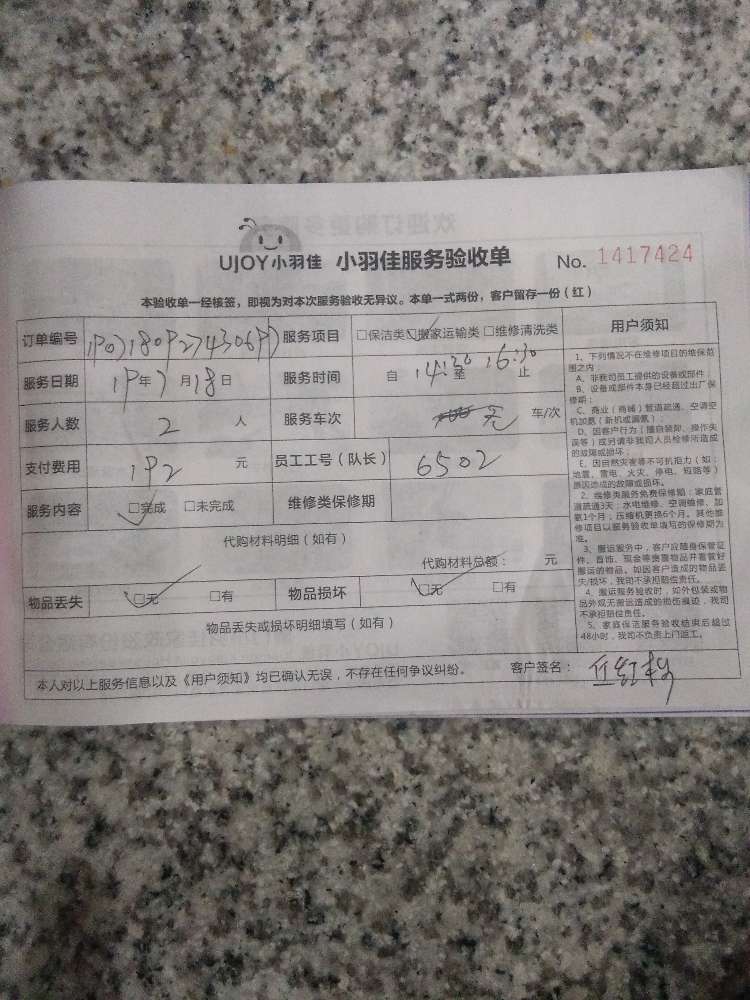 UJOY小羽佳 小羽佳服务验收单 No. 1417424
本验收单一经核签，即视为对本次服务验收无异议。本单一式两份，客户留存一份（红）
订单编号 服务项目 □保洁类 □搬家运输类 □维修清洗类
服务日期 19年7月18日 服务时间 自 14:30 至 16:30 止
服务人数 2 人 服务车次 车/次
支付费用 192 元 员工工号（队长） 6502
服务内容 □完成 □未完成 维修类保修期
代购材料明细（如有）
代购材料总额： 元
物品丢失 □无 □有 物品损坏 □无 □有
物品丢失或损坏明细填写（如有）
本人对以上服务信息以及《用户须知》均已确认无误，不存在任何争议纠纷。 客户签名：
用户须知
1、下列情况不在维修项目的维保范
围之内：
A、非我司员工提供的设备或部件；
B、设备或部件本身已经超过出厂保
修期；
C、商业（商铺）管道疏通、空调空
机加氨（新机或漏氨）；
D、因客户行为（擅自装卸、操作失
误等）或另请非我司人员检修所造成
的故障或损坏；
E、因自然灾害等不可抗拒力（如：
地震、雷电、火灾、停电、短路等）
原因造成的故障或损坏。
2、维修类服务免费保修期：家庭管
道疏通3天；水电维修、空调维修、加
氨1个月；压缩机更换6个月。其他维
修项目以服务验收单填写的保修期为
准。
3、搬运服务中，客户应随身保管证
件、首饰、现金等贵重物品并看管好
搬运的物品。如因客户造成的物品丢
失/损坏，我司不承担赔偿责任。
4、搬运服务验收时，如外包装或物
品外观无搬运造成的损伤痕迹，我司
不承担赔偿责任。
5、家庭保洁服务验收结束后超过
48小时，我司不负责上门返工。